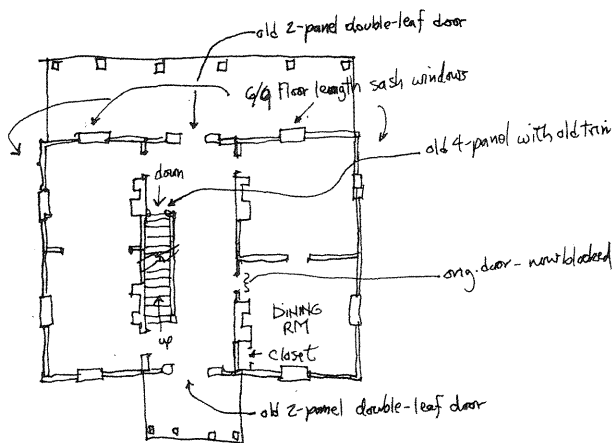 old 2-panel double-leaf door
6/9 Floor length sash windows
old 4-panel with old trim
down
orig. door - now blocked
DINING
RM
up
closet
old 2-panel double-leaf door